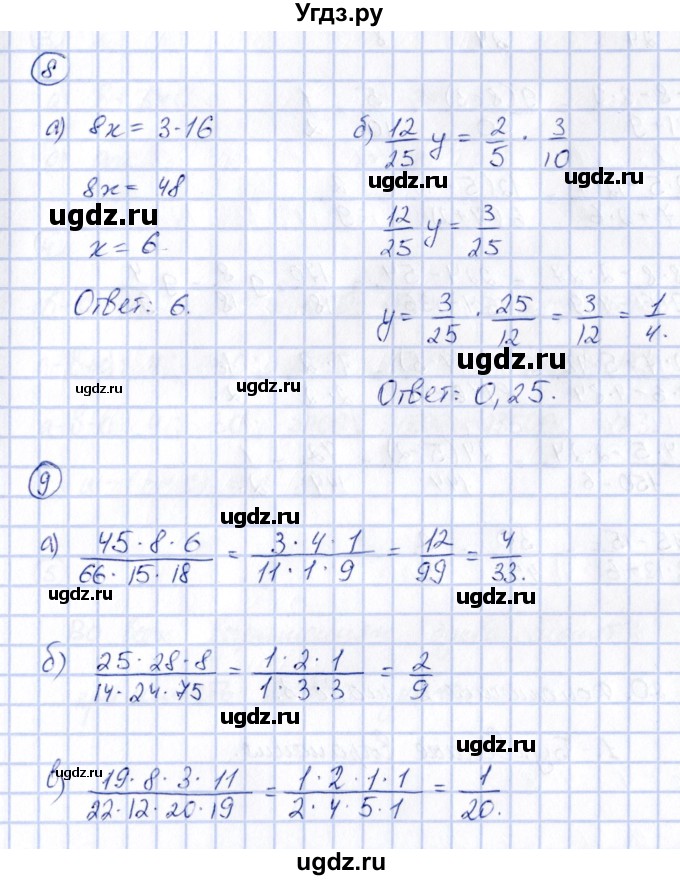 Угдз.ру
8
а) 8x = 3·16
8x = 48
x = 6.
Ответ: 6.
б) 12/25 y = 2/5 · 3/10
12/25 y = 3/25
y = 3/25 · 25/12 = 3/12 = 1/4.
Ответ: 0,25.
ugdz.ru
ugdz.ru
ugdz.ru
ugdz.ru
ugdz.ru
9
ugdz.ru
а) 45·8·6/66·15·18 = 3·4·1/11·1·9 = 12/99 = 4/33.
ugdz.ru
ugdz.ru
б) 25·28·8/14·24·75 = 1·2·1/1·3·3 = 2/9
ugdz.ru
ugdz.ru
ugdz.ru
в) 19·8·3·11/22·12·20·19 = 1·2·1·1/2·4·5·1 = 1/20.
ugdz.ru